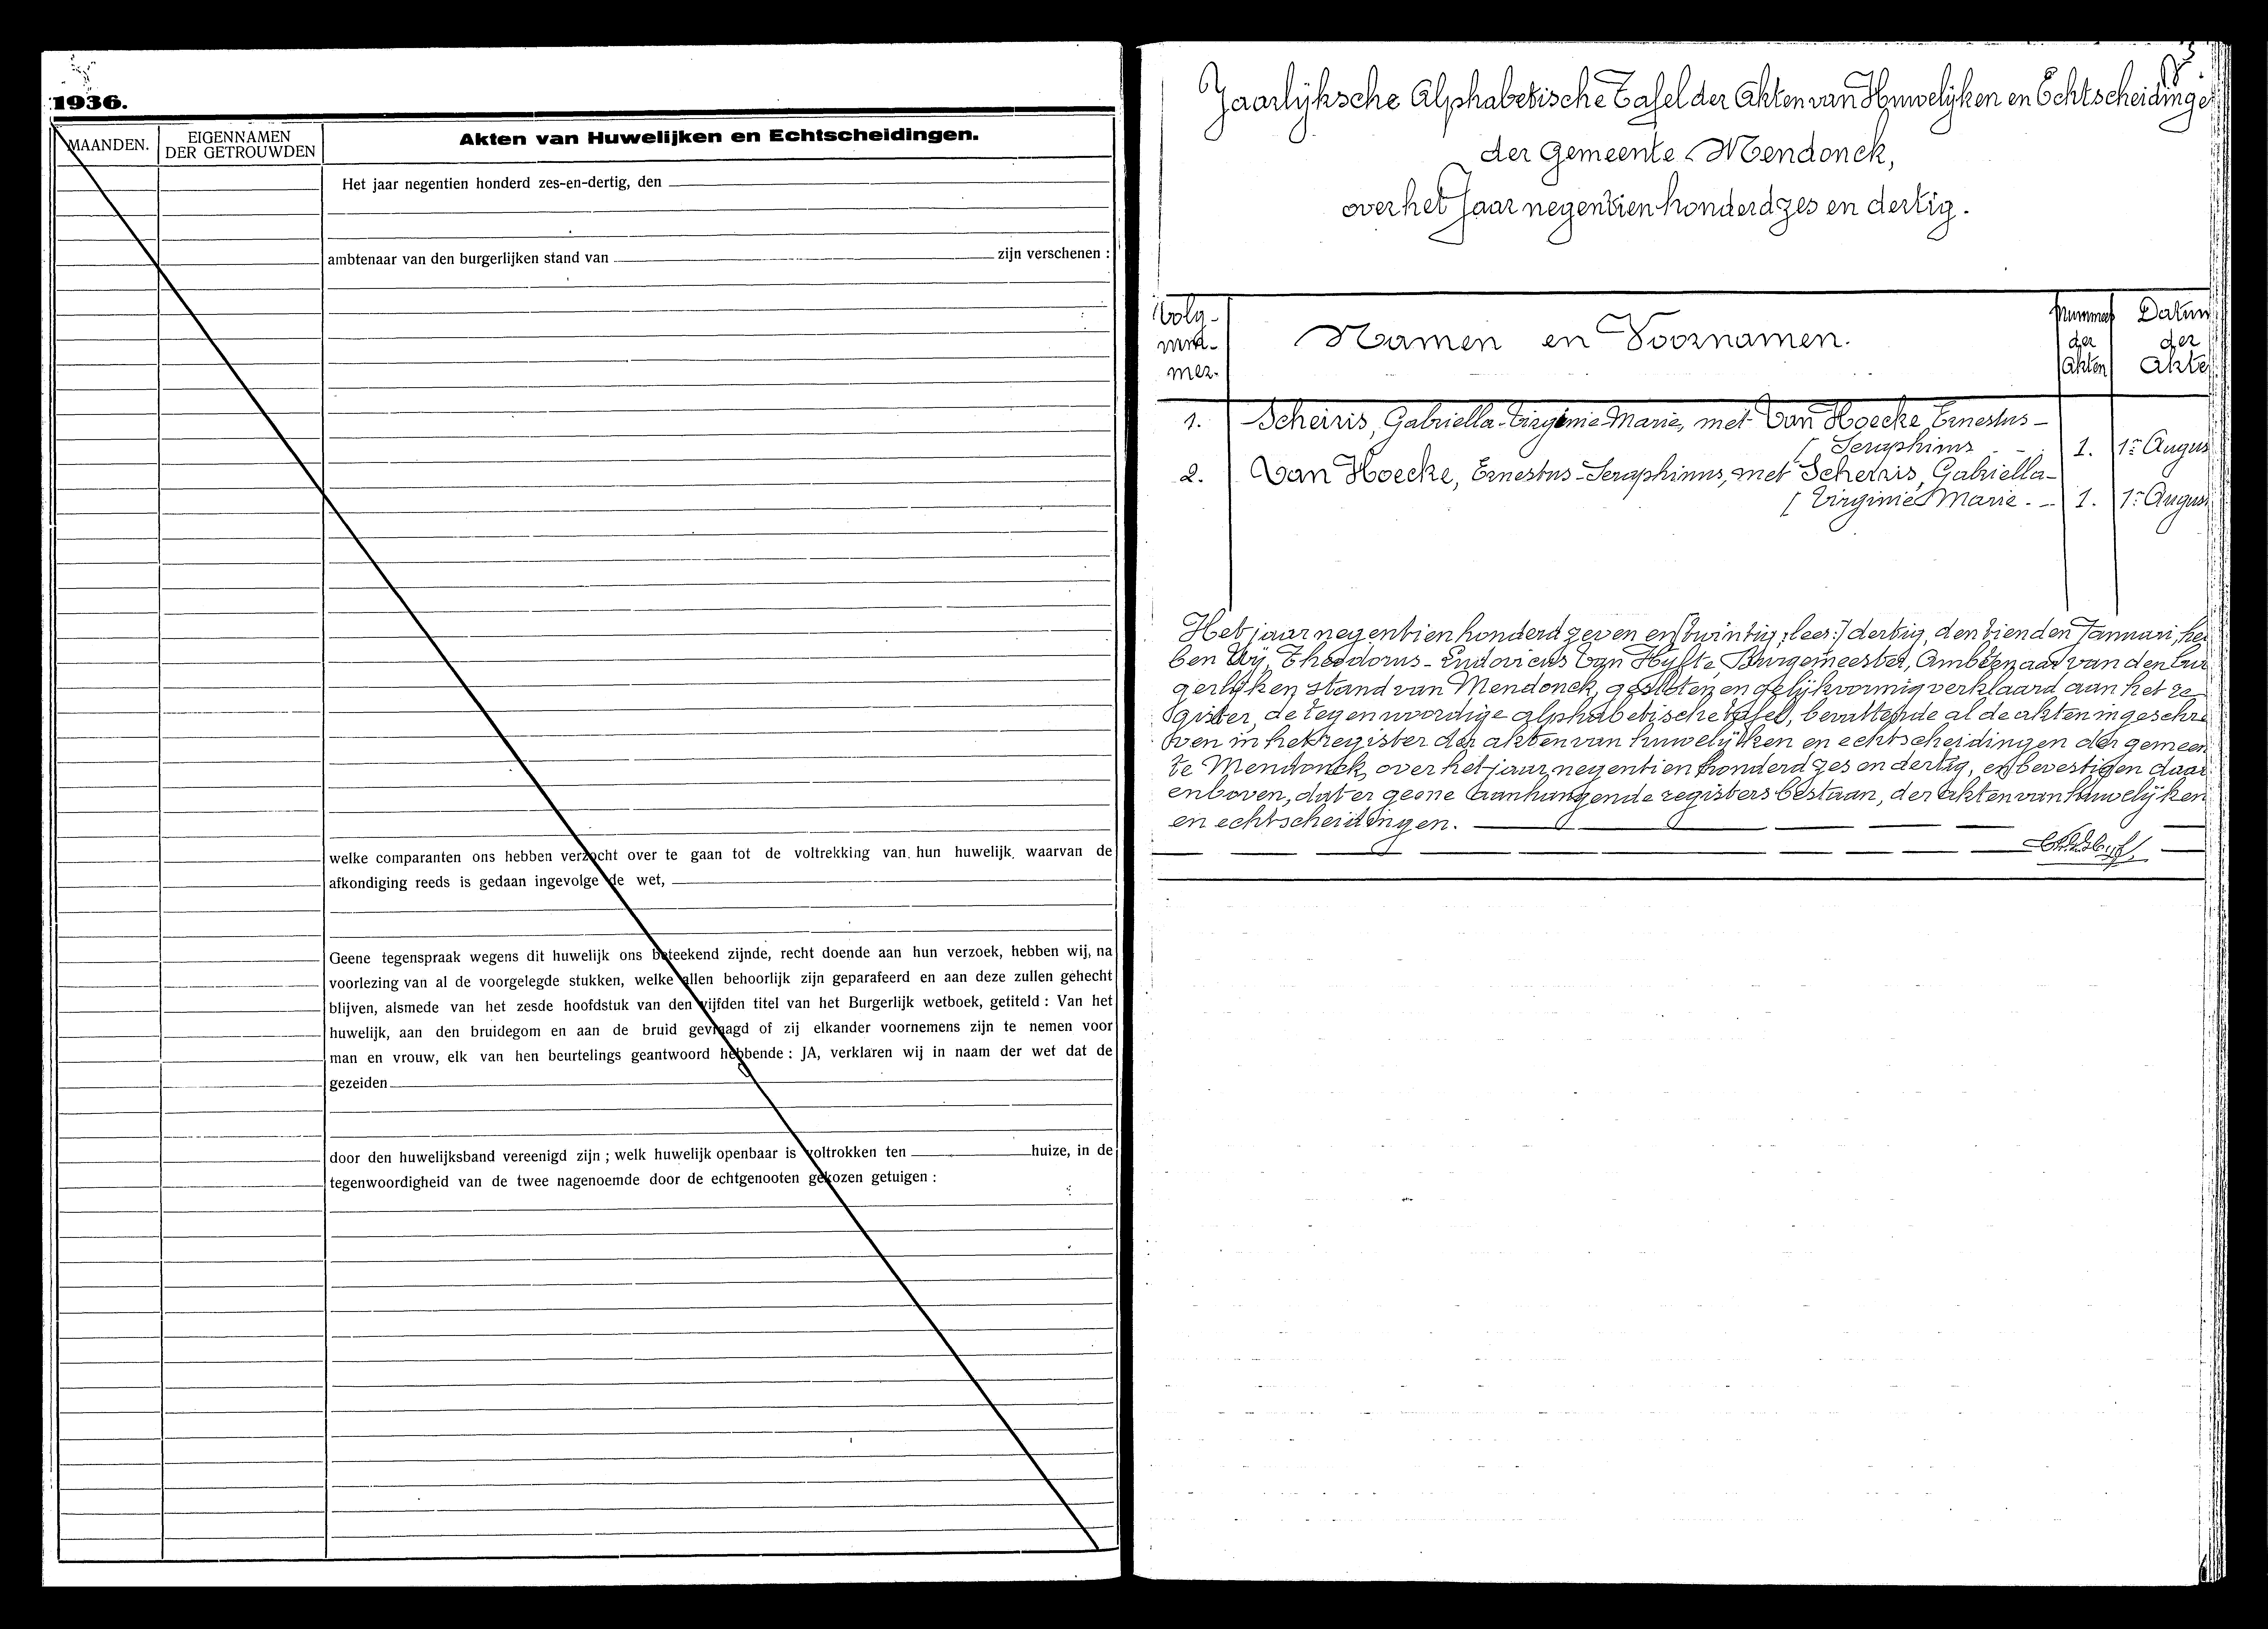 1936.
MAANDEN.
EIGENNAMEN
DER GETROUWDEN
Akten van Huwelijken en Echtscheidingen.
Het jaar negentien honderd zes-en-dertig, den
ambtenaar van den burgerlijken stand van zijn verschenen :
welke comparanten ons hebben verzocht over te gaan tot de voltrekking van hun huwelijk, waarvan de
afkondiging reeds is gedaan ingevolge de wet,
Geene tegenspraak wegens dit huwelijk ons beteekend zijnde, recht doende aan hun verzoek, hebben wij, na
voorlezing van al de voorgelegde stukken, welke allen behoorlijk zijn geparafeerd en aan deze zullen gehecht
blijven, alsmede van het zesde hoofdstuk van den vijfden titel van het Burgerlijk wetboek, getiteld : Van het
huwelijk, aan den bruidegom en aan de bruid gevraagd of zij elkander voornemens zijn te nemen voor
man en vrouw, elk van hen beurtelings geantwoord hebbende : JA, verklaren wij in naam der wet dat de
gezeiden
door den huwelijksband vereenigd zijn ; welk huwelijk openbaar is voltrokken ten huize, in de
tegenwoordigheid van de twee nagenoemde door de echtgenooten gekozen getuigen :
Jaarlijksche Alphabetische Tafel der Akten van Huwelijken en Echtscheidinge
der Gemeente Mendonck,
over het Jaar negentien honderd zes en dertig.
Volg-
num-
mer.
Namen en Voornamen.
Nummer
der
Akten
Datum
der
Akte
1. Scheiris, Gabriella-Virginie Marie, met Van Hoecke, Ernestus-
[ Seraphinus 1. 1n Augus
2. Van Hoecke, Ernestus-Seraphinus, met Scheiris, Gabriella-
[ Virginie Marie. 1. 1n Augus
Het jaar negentien honderd zeven en [twintig, lees:] dertig, den tienden Januari, heb
ben Wij, Theodorus-Ludovicus Van Hyfte, Burgemeester, Ambtenaar van den bur
gerlijken stand van Mendonck, gesloten en gelijkvormig verklaard aan het re-
gister, de tegenwoordige alphabetische tafel, bevattende al de akten ingeschre
ven in het register der akten van huwelijken en echtscheidingen der gemeen
te Mendonck, over het jaar negentien honderd zes en dertig, en bevestigen daar
enboven, dat er geene aanhangende registers bestaan, der akten van huwelijken
en echtscheidingen.